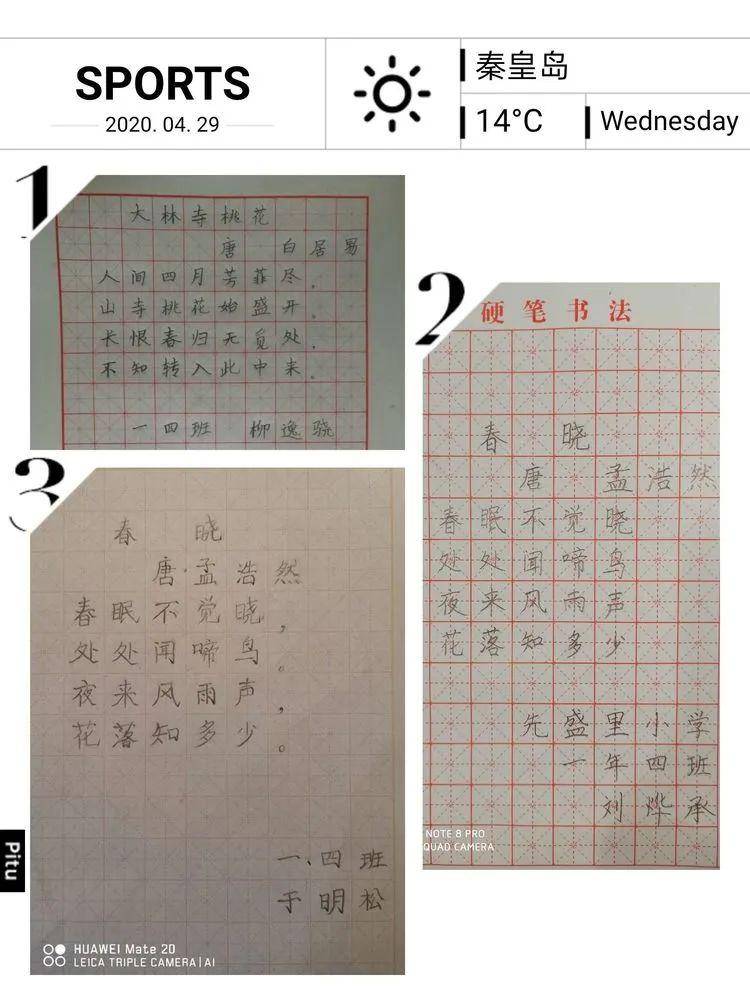 SPORTS
2020. 04. 29
秦皇岛
14°C
Wednesday
1
大林寺桃花
唐 白居易
人间四月芳菲尽，
山寺桃花始盛开。
长恨春归无觅处，
不知转入此中来。
一四班 柳逸骁
2
硬笔书法
春晓
唐 孟浩然
春眠不觉晓
处处闻啼鸟
夜来风雨声
花落知多少
先盛里小学
一年四班
刘烨承
NOTE 8 PRO
QUAD CAMERA
3
春晓
唐·孟浩然
春眠不觉晓，
处处闻啼鸟。
夜来风雨声，
花落知多少。
一、四班
于明松
HUAWEI Mate 20
LEICA TRIPLE CAMERA | AI
Pitu